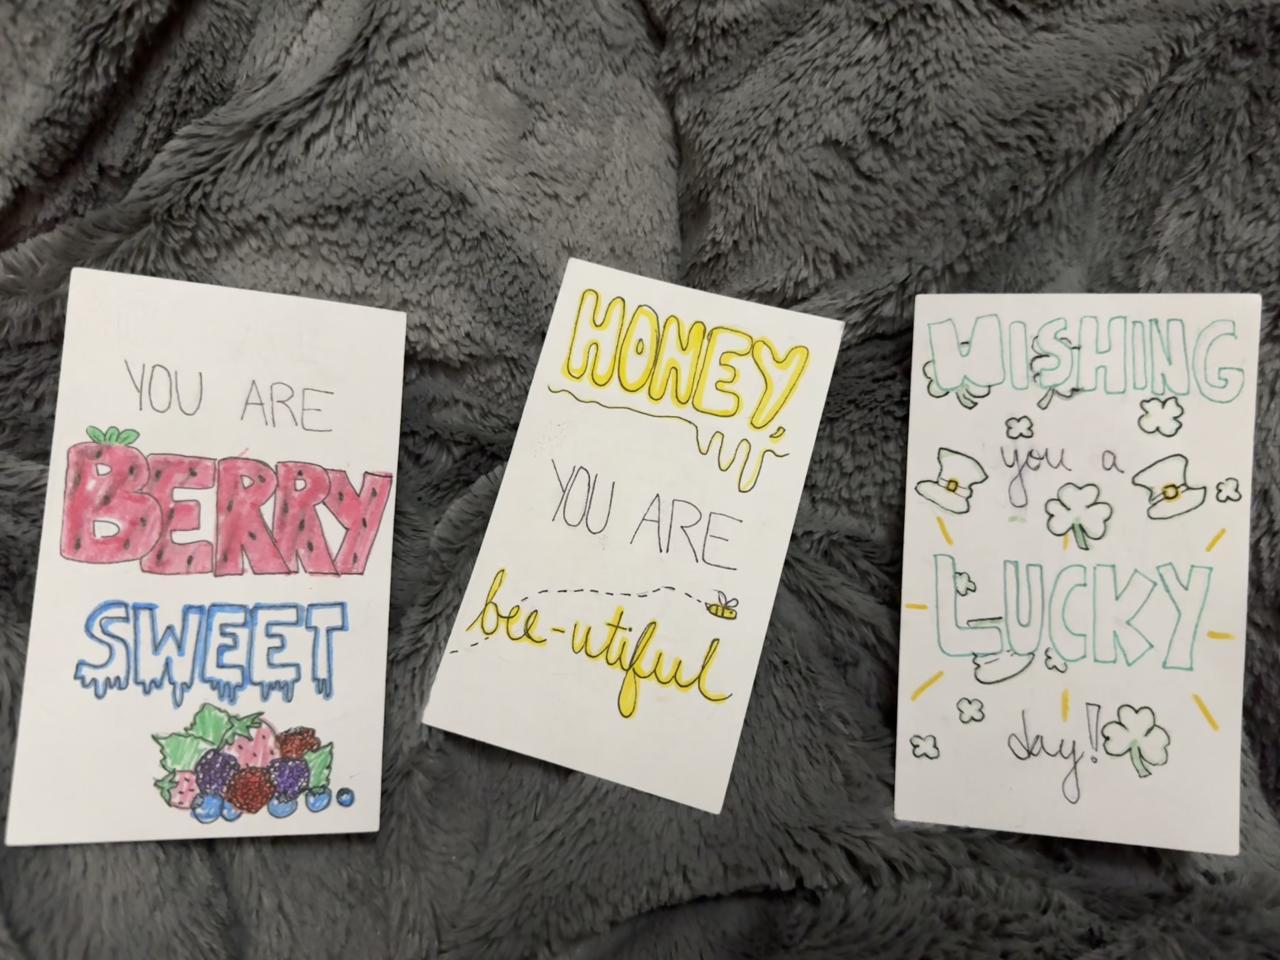 YOU ARE
BERRY
SWEET
HONEY,
YOU ARE
bee-utiful
WISHING
you a
LUCKY
day!